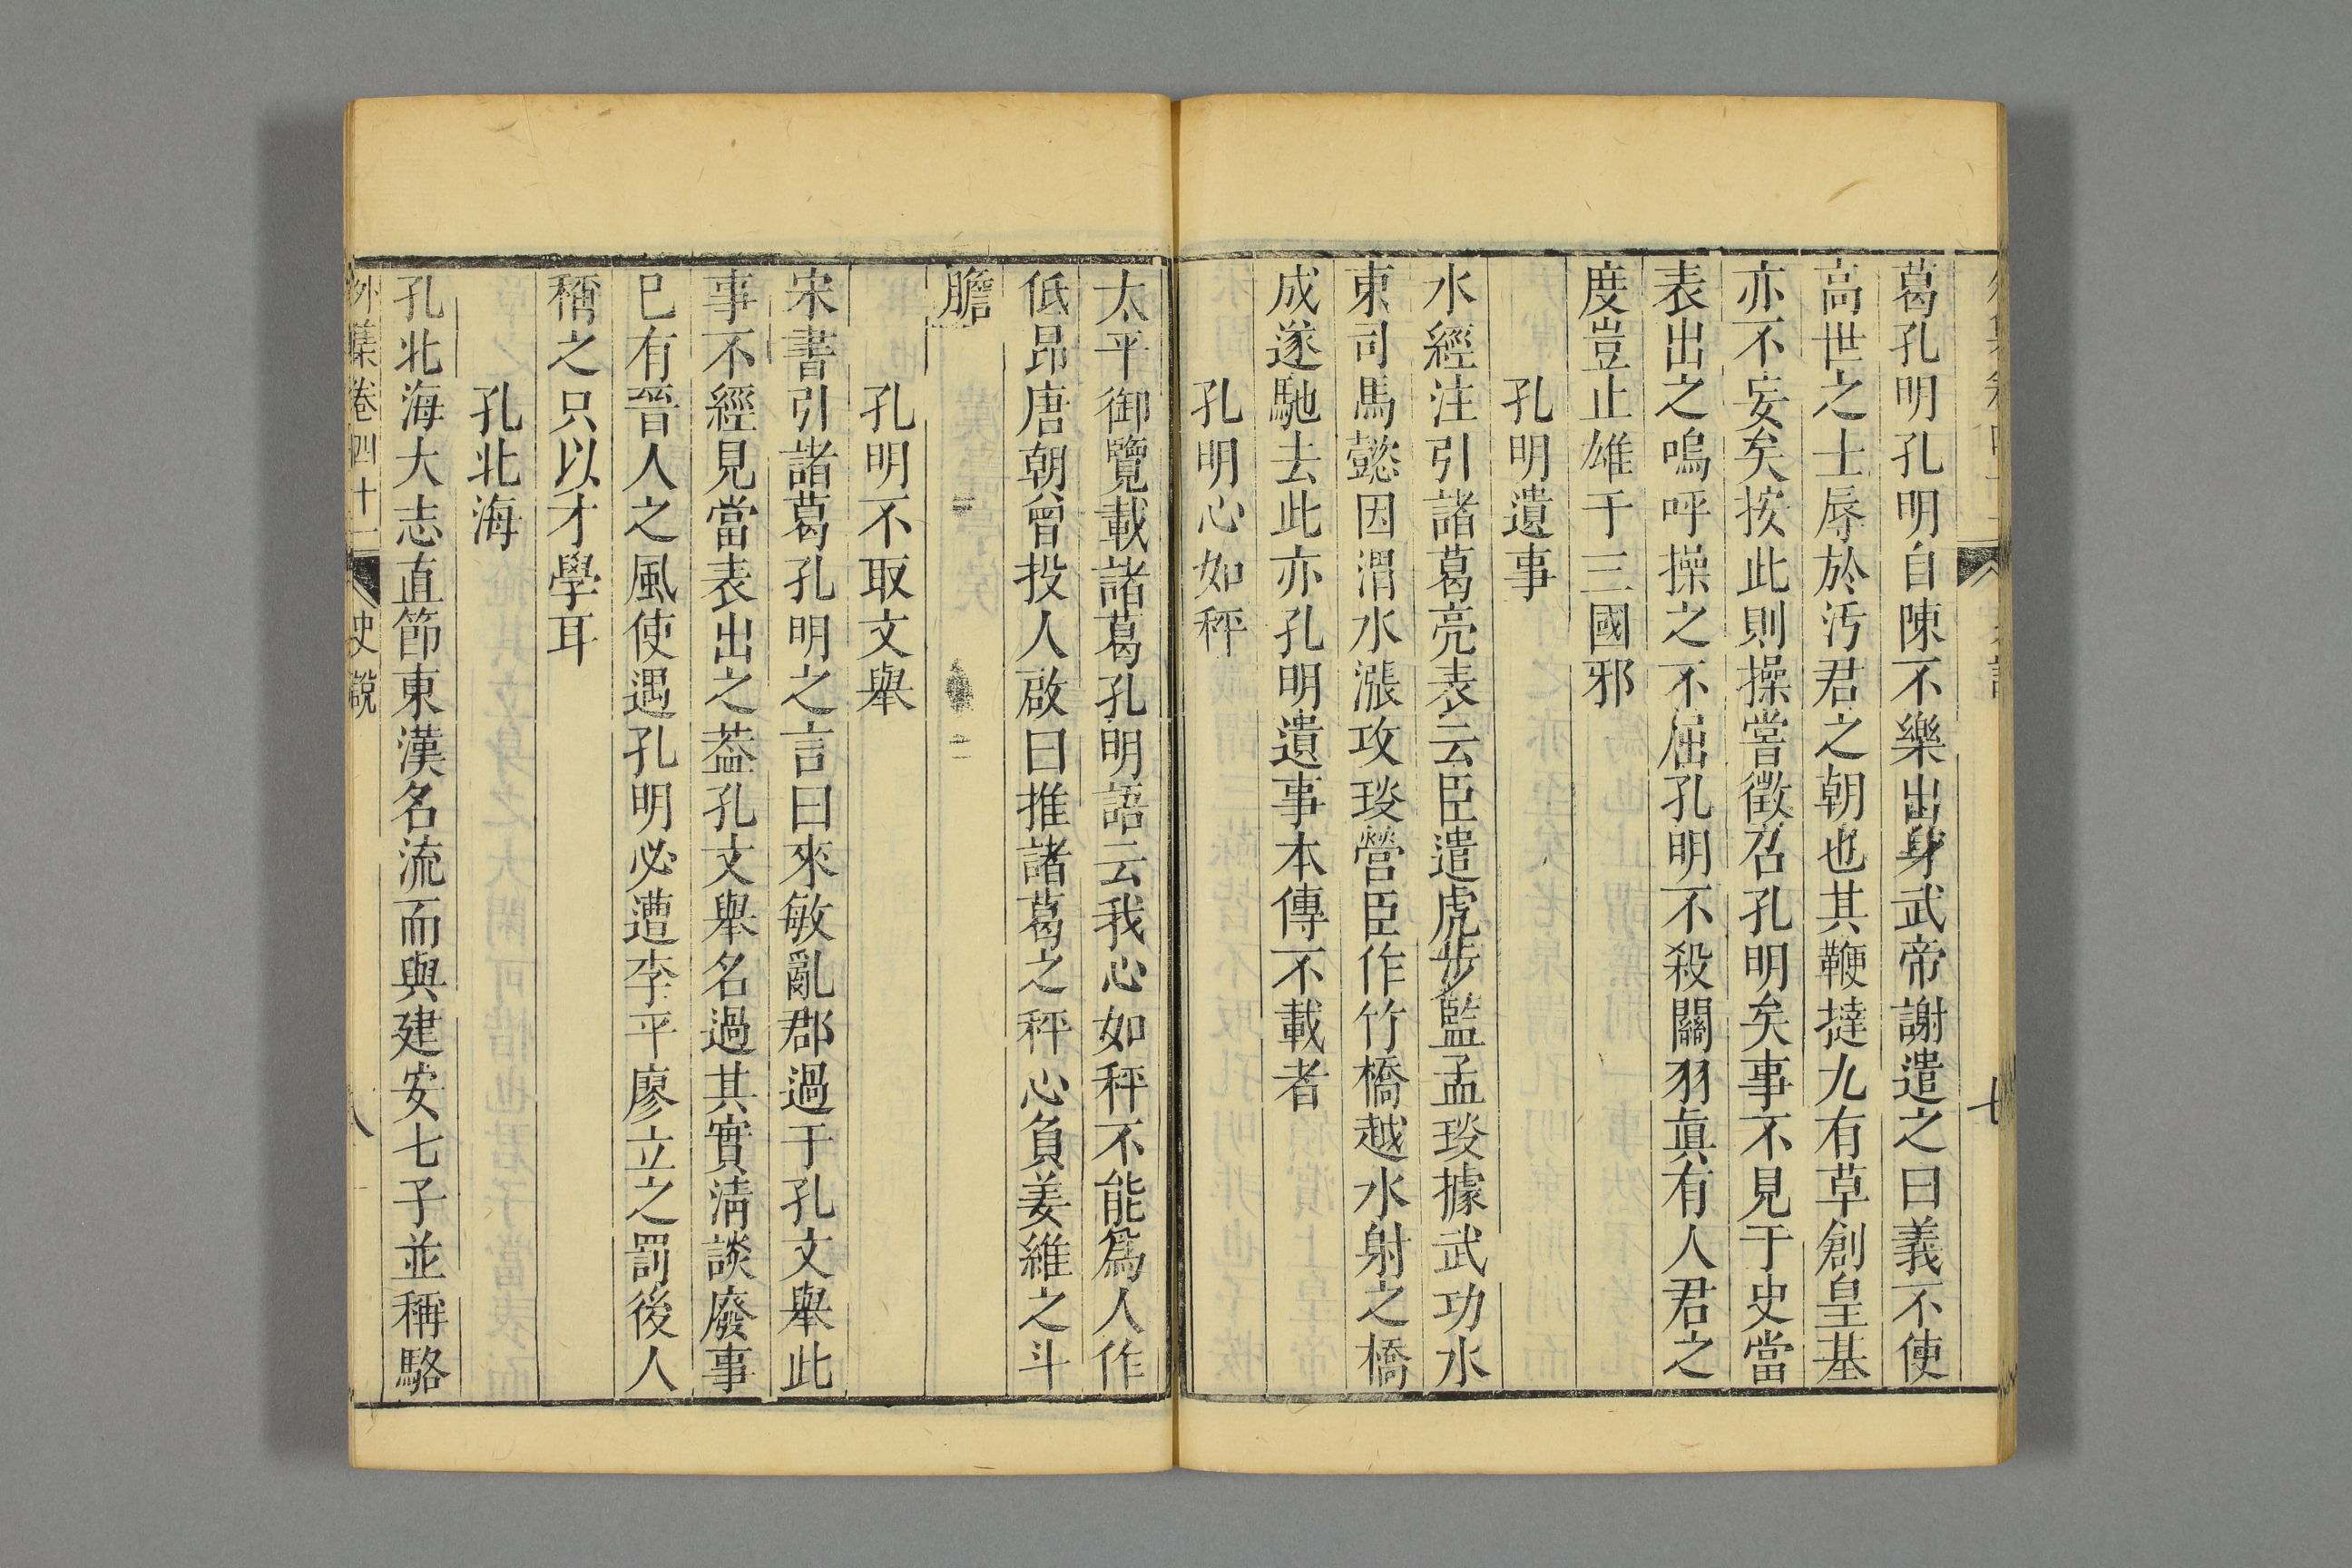 葛孔明孔明自陳不樂出身武帝謝遣之曰義不使
高世之士辱於汚君之朝也其鞭撻九有草創皇基
亦不妄矣按此則操嘗徵召孔明矣事不見于史當
表出之嗚呼操之不屈孔明不殺關羽眞有人君之
度豈止雄于三國邪
孔明遺事
水經注引諸葛亮表云臣遣虎步監孟琰據武功水
東司馬懿因渭水漲攻琰營臣作竹橋越水射之橋
成遂馳去此亦孔明遺事本傳不載者
孔明心如秤
太平御覽載諸葛孔明語云我心如秤不能爲人作
低昂唐朝曾投人啟曰推諸葛之秤心負姜維之斗
膽
孔明不取文舉
宋書引諸葛孔明之言曰來敏亂郡過于孔文舉此
事不經見當表出之葢孔文舉名過其實淸談廢事
已有晉人之風使遇孔明必遭李平廖立之罰後人
稱之只以才學耳
孔北海
孔北海大志直節東漢名流而與建安七子並稱駱
外集卷四十一 史說 八